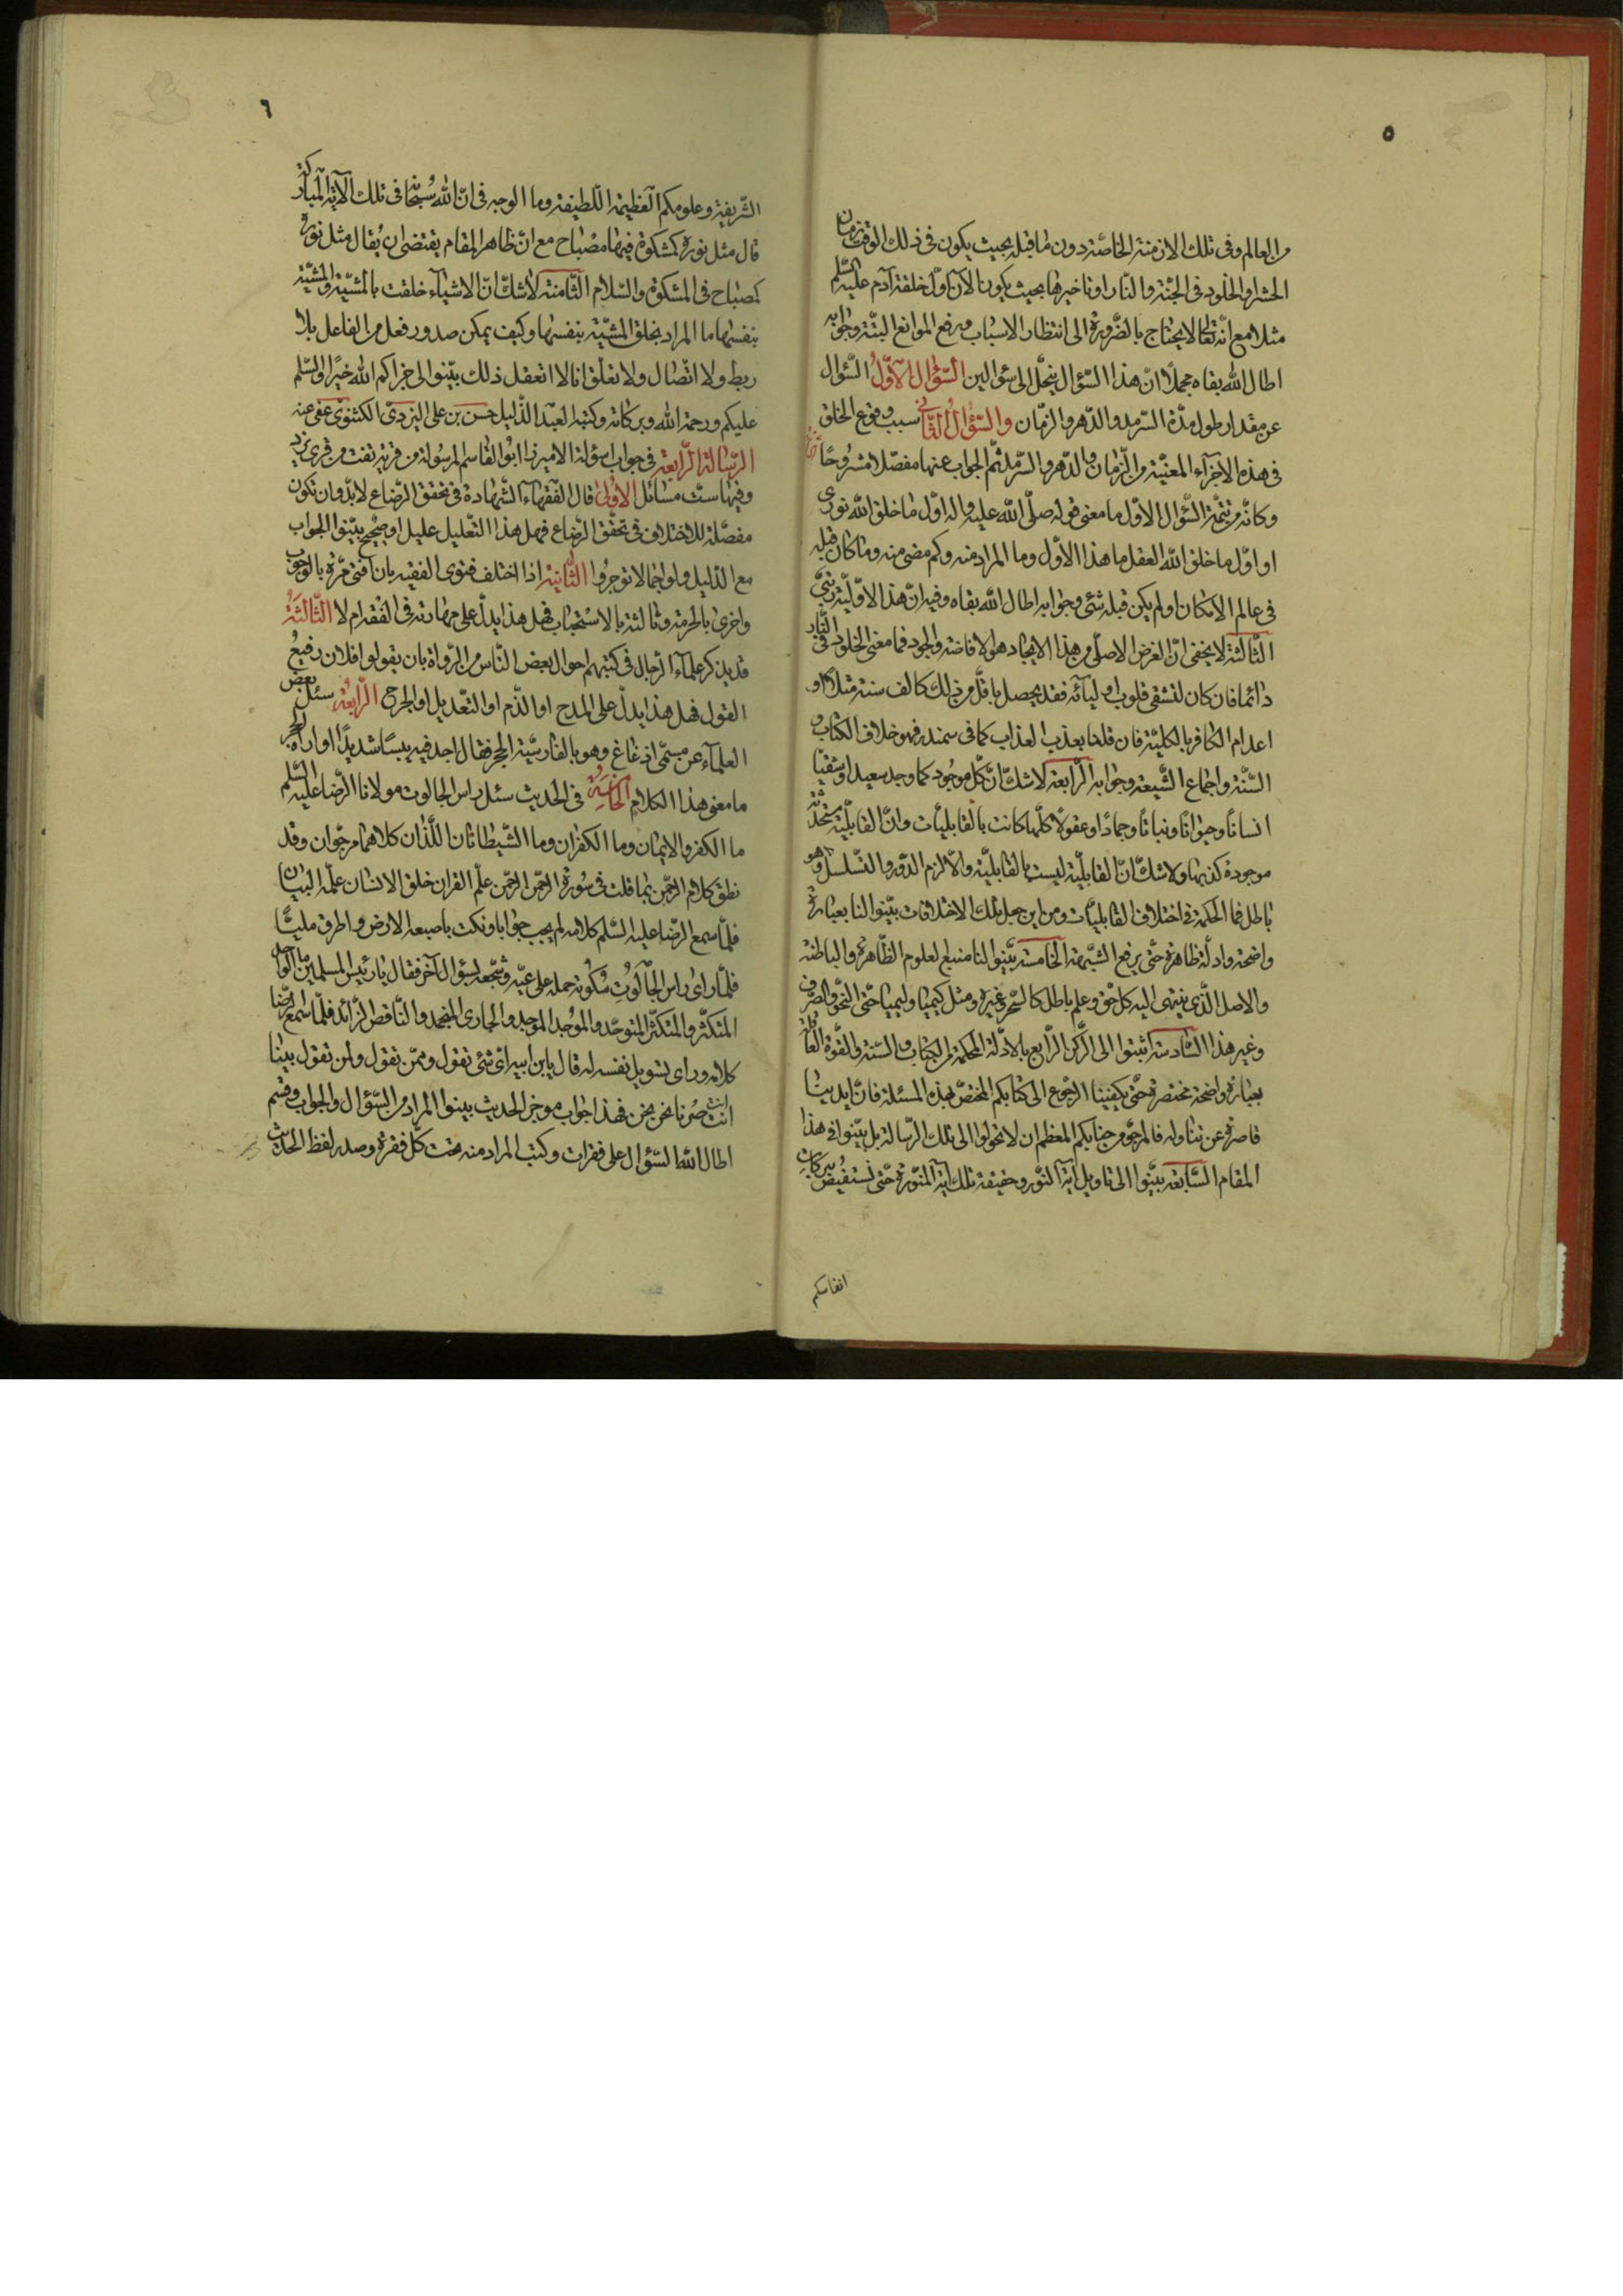 ٥
من العالم وفى تلك الازمنة الخاصّة دون ما قبله بحيث يكون فى ذلك الوقت زمان
الحشر او الخلود فى الجنّة والنّار او تاخيرها بحيث يكون الآن اوّل خلقة آدم عليه السّلم
مثلا مع انّه تعالى لا يحتاج بالضّرورة الى انتظار الاسباب ورفع الموانع البتّة وجوابه
اطال الله بقاه مجملًا انّ هذا السّؤال ينحلّ الى سؤالين السّؤال الاوّل السّؤال
عن مقدار طول مدّة السّرمد والدّهر والزّمان والسّؤال الثّانى سبب وقوع الخلق
فى هذه الاجزآء المعيّنة من الزّمان والدّهر والسّرمد ثم الجواب عنهما مفصّلا مشروحًا
وكانّه من تتمّة السّؤال الاوّل ما معنى قوله صلّى الله عليه واله اوّل ما خلق الله نورى
او اوّل ما خلق الله العقل ما هذا الاوّل وما المراد منه وكم مضى منه وما كان قبله
فى عالم الامكان او لم يكن قبله شئ وجوابه اطال الله بقاه وفيه انّ هذا الاوّليّة
الثّالثة لا يخفى انّ الغرض الاصلّى من هذا الايجاد هو الافاضة والجود فما معنى الخلود فى النّار
دائما فان كان لتشفى قلوب اوليآئه فقد يحصل باقلّ من ذلك كالف سنة مثلا او
اعدام الكافر بالكليّة فان قلنا بعذب العذاب كما فى سمندر فهو خلاف الكتاب و
السّنّة واجماع الشّيعة وجوابه الرّابعة لا شكّ انّ كلّ موجود كما وجد سعيدا وشقيّا
انسانًا وحيوانًا ونباتًا وجمادًا وعقولًا كلّها كانت بالقابليّات وانّ القابليّة متّحدة
موجودة كذبها ولا شكّ انّ القابليّة ليست بالقابليّة والّا لزم الدّور والتّسلسل وهو
باطل فما الحكمة فى اختلاف القابليّات ومن اين جعل تلك الاختلافات بيّنوا لنا بعبارة
واضحة وادلّة ظاهرة حتّى يرفع الشّبهة الخامسة بيّنوا لنا منبع العلوم الظّاهرة والباطنة
والاصل الّذى ينتهى اليه كلّ حقّ وعلم باطل كالسّحر وغيره ومثل كيميا وليميا حتّى النّحو والصّرف
وغير هذا السّادسة اثبتوا الى الرّكن الرّابع بالادلّة المحكمة من الكتاب والسّنة والقوّة
بعبارة واضحة مختصرة حتّى يكفينا الرجوع الى كتابكم المختصّ بهذه المسئلة فانّ ايدينا
قاصرة عن تناوله فالمرجوّ من جنابكم المعظم ان لا تحولوا الى تلك الرّسالة بل بيّنوا فى هذا
المقام السّابعة بيّنوا الى تاويل آية النّور وحقيقة تلك آية المنوّرة حتّى نستفيض ببركات
انفاسكم
٦
الشّريفة وعلومكم العظيمة اللّطيفة وما الوجه فى انّ الله سُبحانه فى تلك الآية المباركة
قال مثل نوره كمشكوة فيها مصباح مع انّ ظاهر المقام يقتضى ان يُقال مثل نوره
كمصباح فى المشكوة والسّلام الثّامنة لا شكّ انّ الاشيآء خلقت بالمشيّة والمشيّة
بنفسها ما المراد بخلق المشيّة بنفسها وكيف يمكن صدور فعل من الفاعل بلا
ربط ولا اتّصال ولا تعلّق انا لا اتعقل ذلك بيّنوا لى جزاكم الله خيرًا والسّلم
عليكم ورحمة الله وبركاته وكتبه العبد الذّليل حسن بن على اليزدىّ الكثنوى عفى عنه
الرّسالة الرّابعة فى جواب اسؤلة الامير زا ابو القاسم المرسولة من قرية تفت من قرى يزد
وفيها ستّ مسائل الاولى قال الفقهاء الشّهادة فى تحقق الرّضاع لابدّ وان تكون
مفصّلة للاختلاف فى تحقّق الرّضاع فهل هذا التّعليل عليل او صحيح بيّنوا الجواب
مع الدّليل ولو اجمالا توجروا الثّانية اذا اختلف فتوى الفقيه بان افتى مرّة بالوجوب
واخرى بالحرمة وثالثة بالاستحباب فهل هذا يدلّ على مهارته فى الفقه ام لا الثّالثة
قد يذكر علمآء الرّجال فى كتبهم احوال بعض النّاس من الرّواة بان يقولوا فلان رفيع
القول فهل هذا يدلّ على المدح او الذّم او التّعديل او الجرح الرّابعة سئل بعض
العلمآء عن مسمّى اذغاغ وهو بالفارسيّة الحجر فقال اجد فيه يبسًا شديدًا او اراه الحجر
ما معنى هذا الكلام الخامسة فى الحديث سئل راس الجالوت مولانا الرّضا عليه السّلم
ما الكفر والايمان وما الكفران وما الشّيطانان اللّذان كلاهما مرجّوان وقد
نطق كلام الرّحمن بما قلت فى سورة الرّحمن الرّحمن علّم القران خلق الانسان علّمه البيان
فلمّا سمع الرّضا عليه السّلم كلامه لم يجب جوابا ونكت باصبعه الارض واطرق مليًّا
فلمّا راى راس الجالوت سكوته حمله على عيّه وشجّعه لسؤال آخر فقال يا رئيس المسلمين ما الواحد
المتكثّر والمتكثّر المتوحّد والموجد الموجد والجارى المنجمد والنّاقص الزّائد فلمّا سمع الرّضا
كلامه وراى تسويل نفسه له قال يابن ابيه اىّ شئ تقول وممّن تقول ولمن تقول بينا
انت صرنا نحن نحن فهذا جواب موجز الحديث بينوا المراد من السّؤال والجواب وقسم
اطال الله السّؤال على فقرات وكتب المراد منه تحت كلّ فقرة وصدر لفظ الحديث